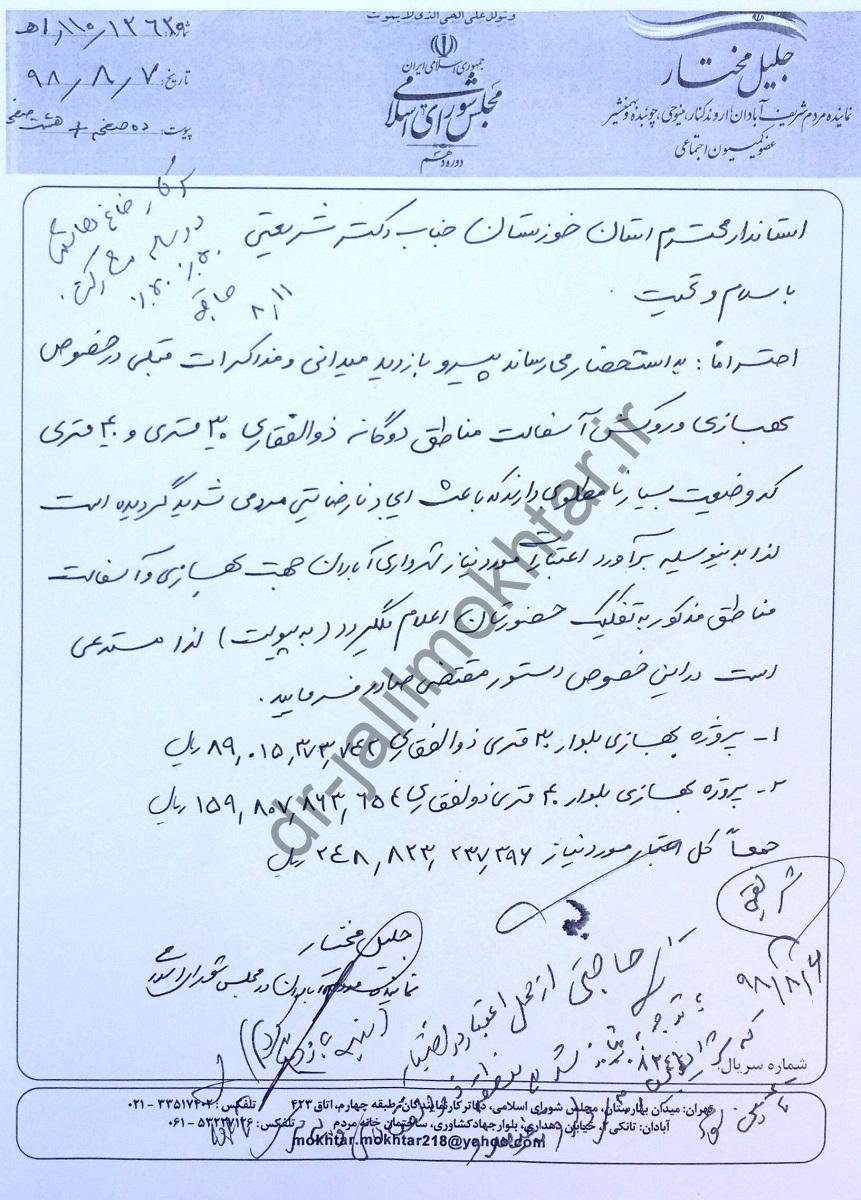 و توکل علی الحی الذی لا یموت
جمهوری اسلامی ایران
مجلس شورای اسلامی
دوره دهم
جلیل مختار
نماینده مردم شریف آبادان، اروندکنار، مینوحی، چوئبده و بهمنشیر
عضو کمیسیون اجتماعی
تاریخ: ۹۸/۸/۷
پیوست: ده صفحه + هشت صفحه
استاندار محترم استان خوزستان جناب دکتر شریعتی
با سلام و تحیت
احتراماً: به استحضار می‌رساند پیرو بازدید میدانی و مذاکرات قبلی در خصوص
بهسازی و روکش آسفالت مناطق دوگانه ذوالفقاری ۳۰ متری و ۴۰ متری
که وضعیت بسیار نامطلوبی دارند که باعث ایجاد نارضایتی مردمی شدید گردیده است
لذا بدینوسیله برآورد اعتبارات مورد نیاز شهرداری آبادان جهت بهسازی و آسفالت
مناطق مذکور به تفکیک حضورتان اعلام میگردد (به پیوست) لذا مستدعی
است در این خصوص دستور مقتضی صادر فرمایید.
۱- پروژه بهسازی بلوار ۳۰ متری ذوالفقاری ۸۹,۰۱۵,۳۷۳,۷۴۲ ریال
۲- پروژه بهسازی بلوار ۴۰ متری ذولفقاری ۱۵۹,۸۰۷,۸۶۳,۶۵۴ ریال
جمعاً کل اعتبار مورد نیاز ۲۴۸,۸۲۳,۲۳۷,۳۹۶ ریال
جلیل مختار
نماینده مردم آبادان در مجلس شورای اسلامی
آقای حاجتی از محل اعتبار در اختیار
شماره سریال:
تهران: میدان بهارستان، مجلس شورای اسلامی، دفاتر کار نمایندگان، طبقه چهارم، اتاق ۴۲۳ تلفکس: ۳۳۵۱۷۴۰۲ - ۰۲۱
آبادان: تانکی۲، خیابان دهداری، بلوار جهاد کشاورزی، ساختمان خانه مردم تلفکس: ۵۳۲۲۷۱۲۶ - ۰۶۱
mokhtar.mokhtar218@yahoo.com
dr-jalilmokhtar.ir